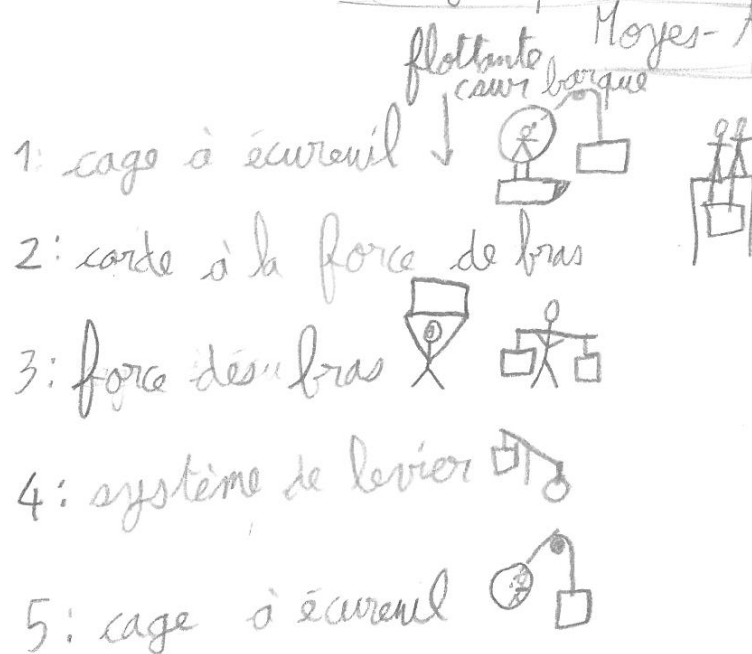 Moyes-
flottante
(sur barque
1: cage à écureuil
2: corde à la force de bras
3: force des bras
4: système de levier
5: cage à écureuil